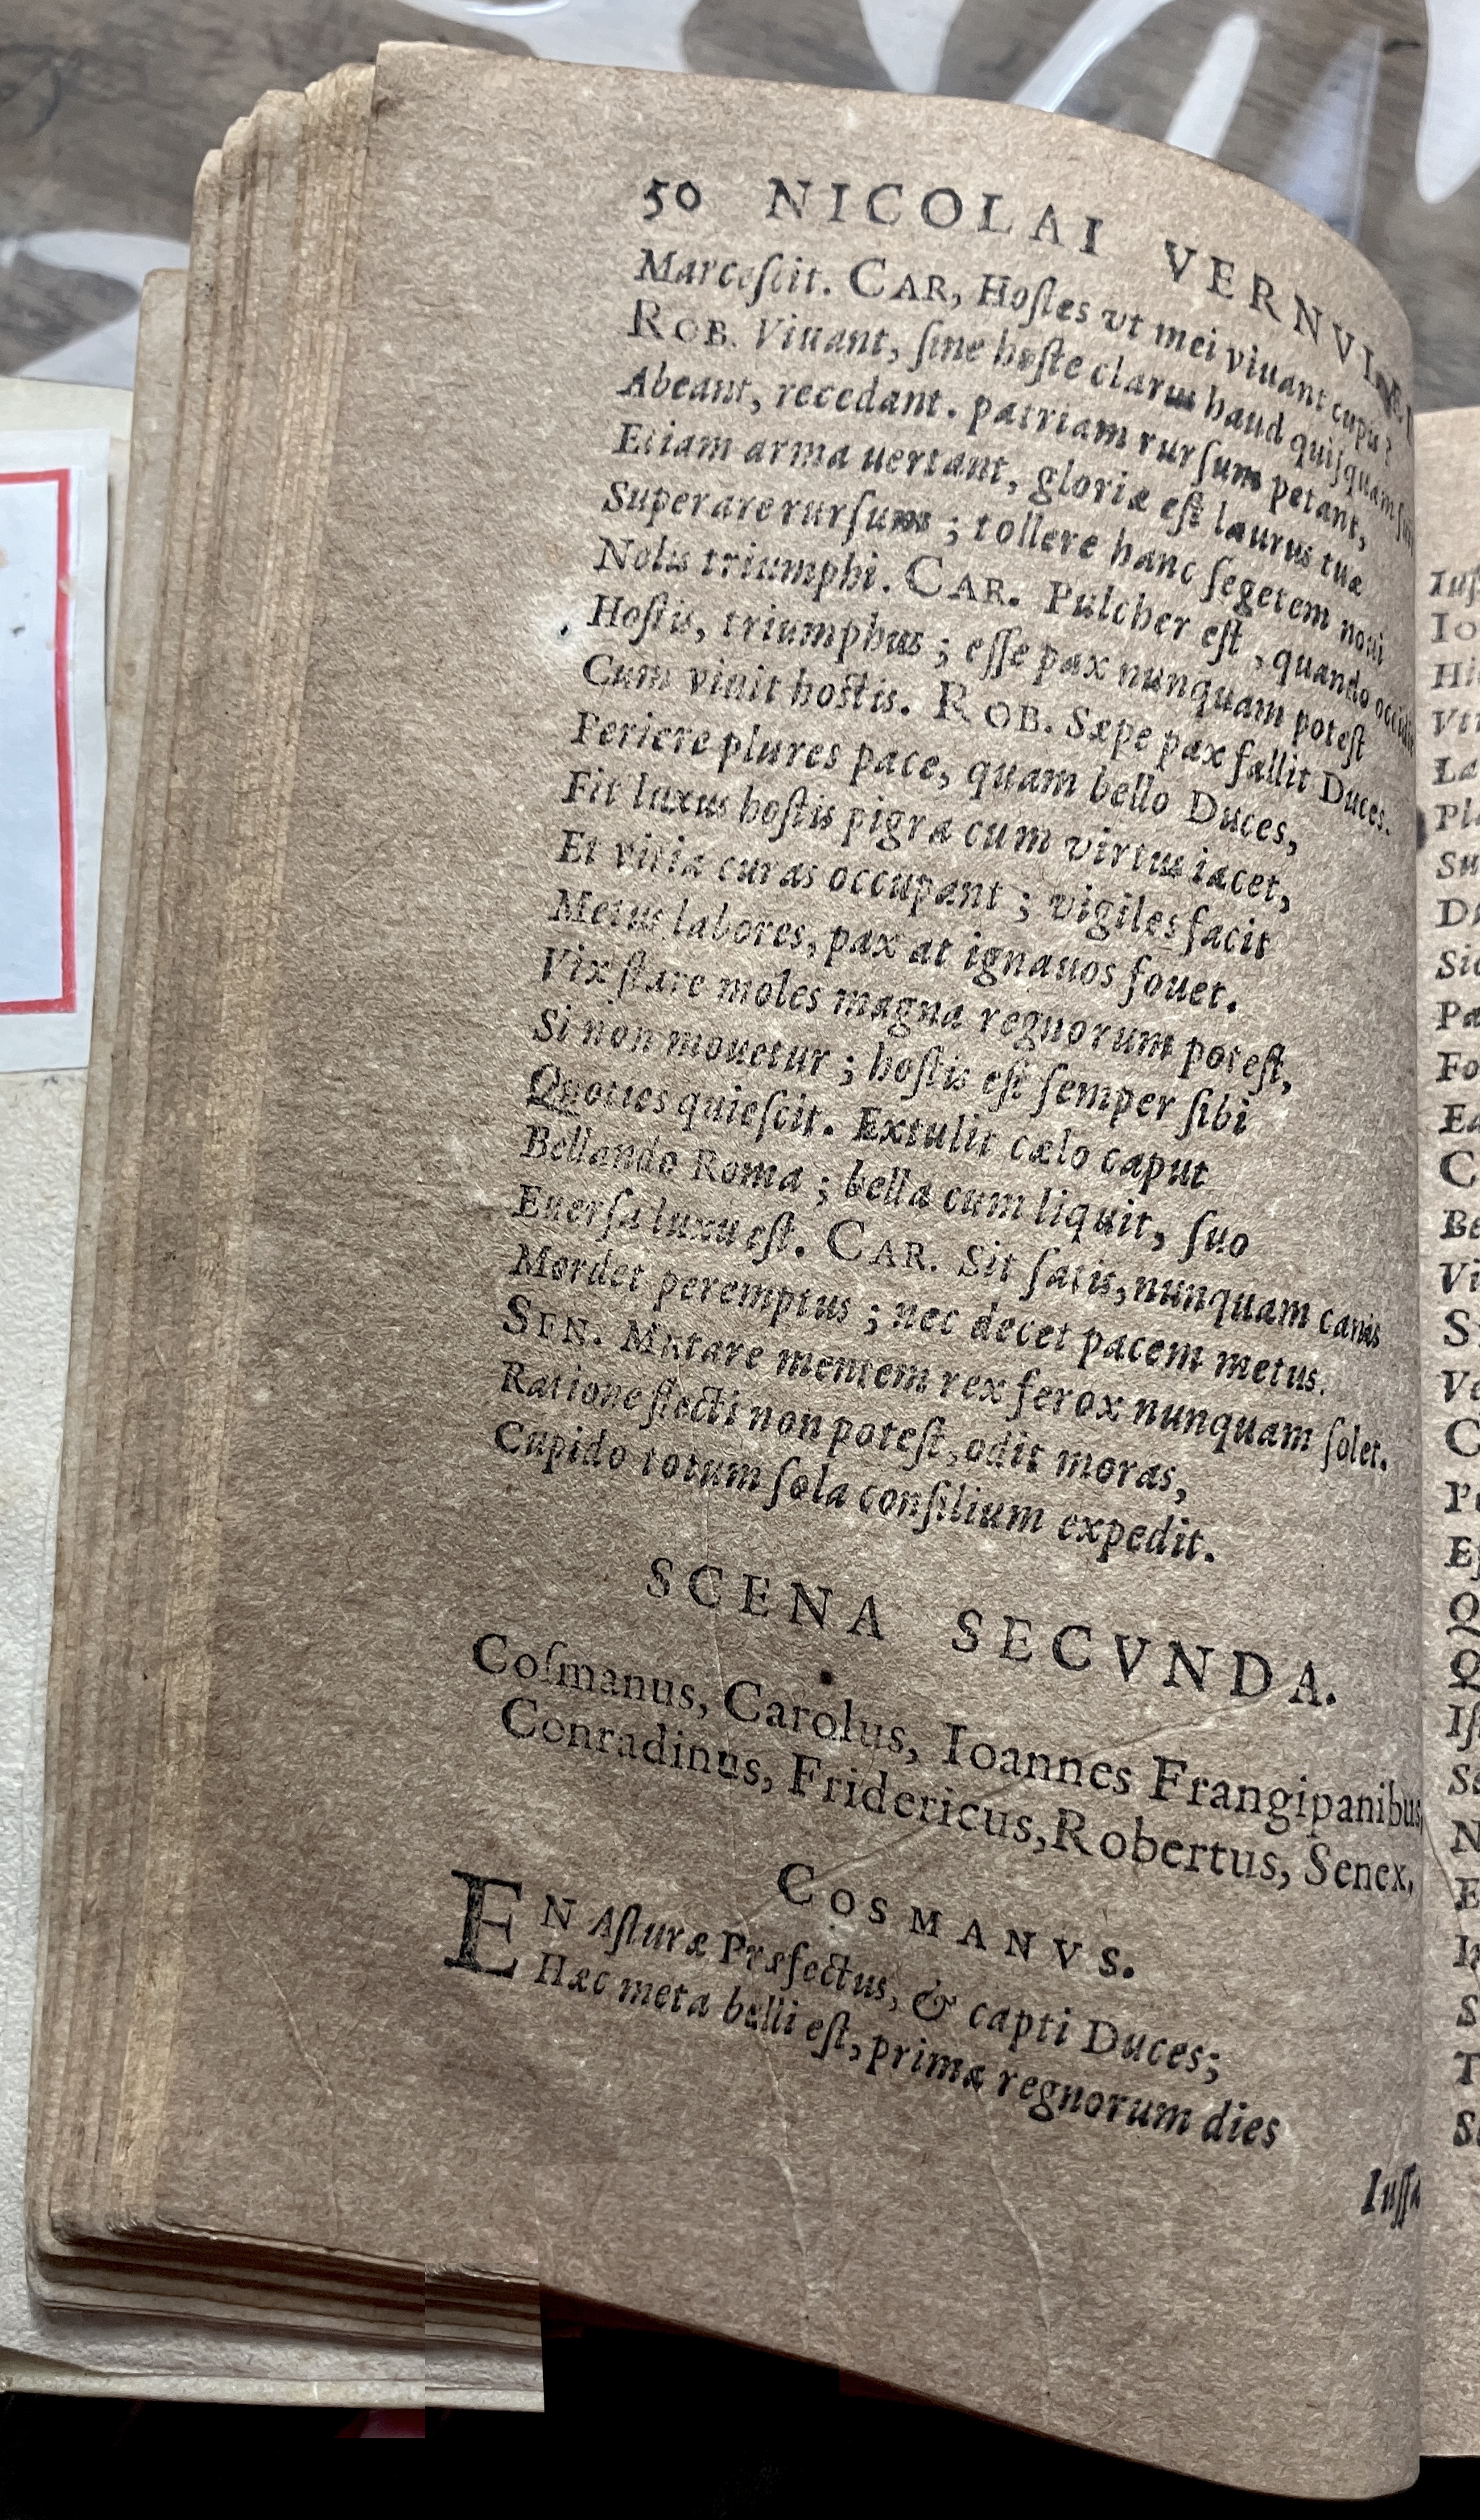 50 NICOLAI VERNVLÆI
Marcescit. CAR, Hostes vt mei viuant cupis?
ROB. Viuant, sine hoste clarus haud quisquam fuit
Abeant, recedant. patriam rursum petant,
Etiam arma uertant, gloriæ est laurus tuæ
Superare rursum; tollere hanc segetem noui
Nolis triumphi. CAR. Pulcher est, quando occidit
Hostis, triumphus; esse pax nunquam potest
Cum viuit hostis. ROB. Sæpe pax fallit Duces.
Periere plures pace, quam bello Duces,
Fit luxus hostis pigra cum virtus iacet,
Et vitia curas occupant; vigiles facit
Metus labores, pax at ignauos fouet.
Vix stare moles magna regnorum potest,
Si non mouetur; hostis est semper sibi
Quoties quiescit. Extulit cælo caput
Bellando Roma; bella cum liquit, suo
Euersa luxu est. CAR. Sit satis, nunquam canis
Mordet peremptus; nec decet pacem metus.
SEN. Mutare mentem rex ferox nunquam solet.
Ratione flecti non potest, odit moras,
Cupido totum sola consilium expedit.
SCENA SECVNDA.
Cosmanus, Carolus, Ioannes Frangipanibus,
Conradinus, Fridericus, Robertus, Senex,
COSMANVS.
EN Asturæ Præfectus, & capti Duces;
Hæc meta belli est, prima regnorum dies
Iussa